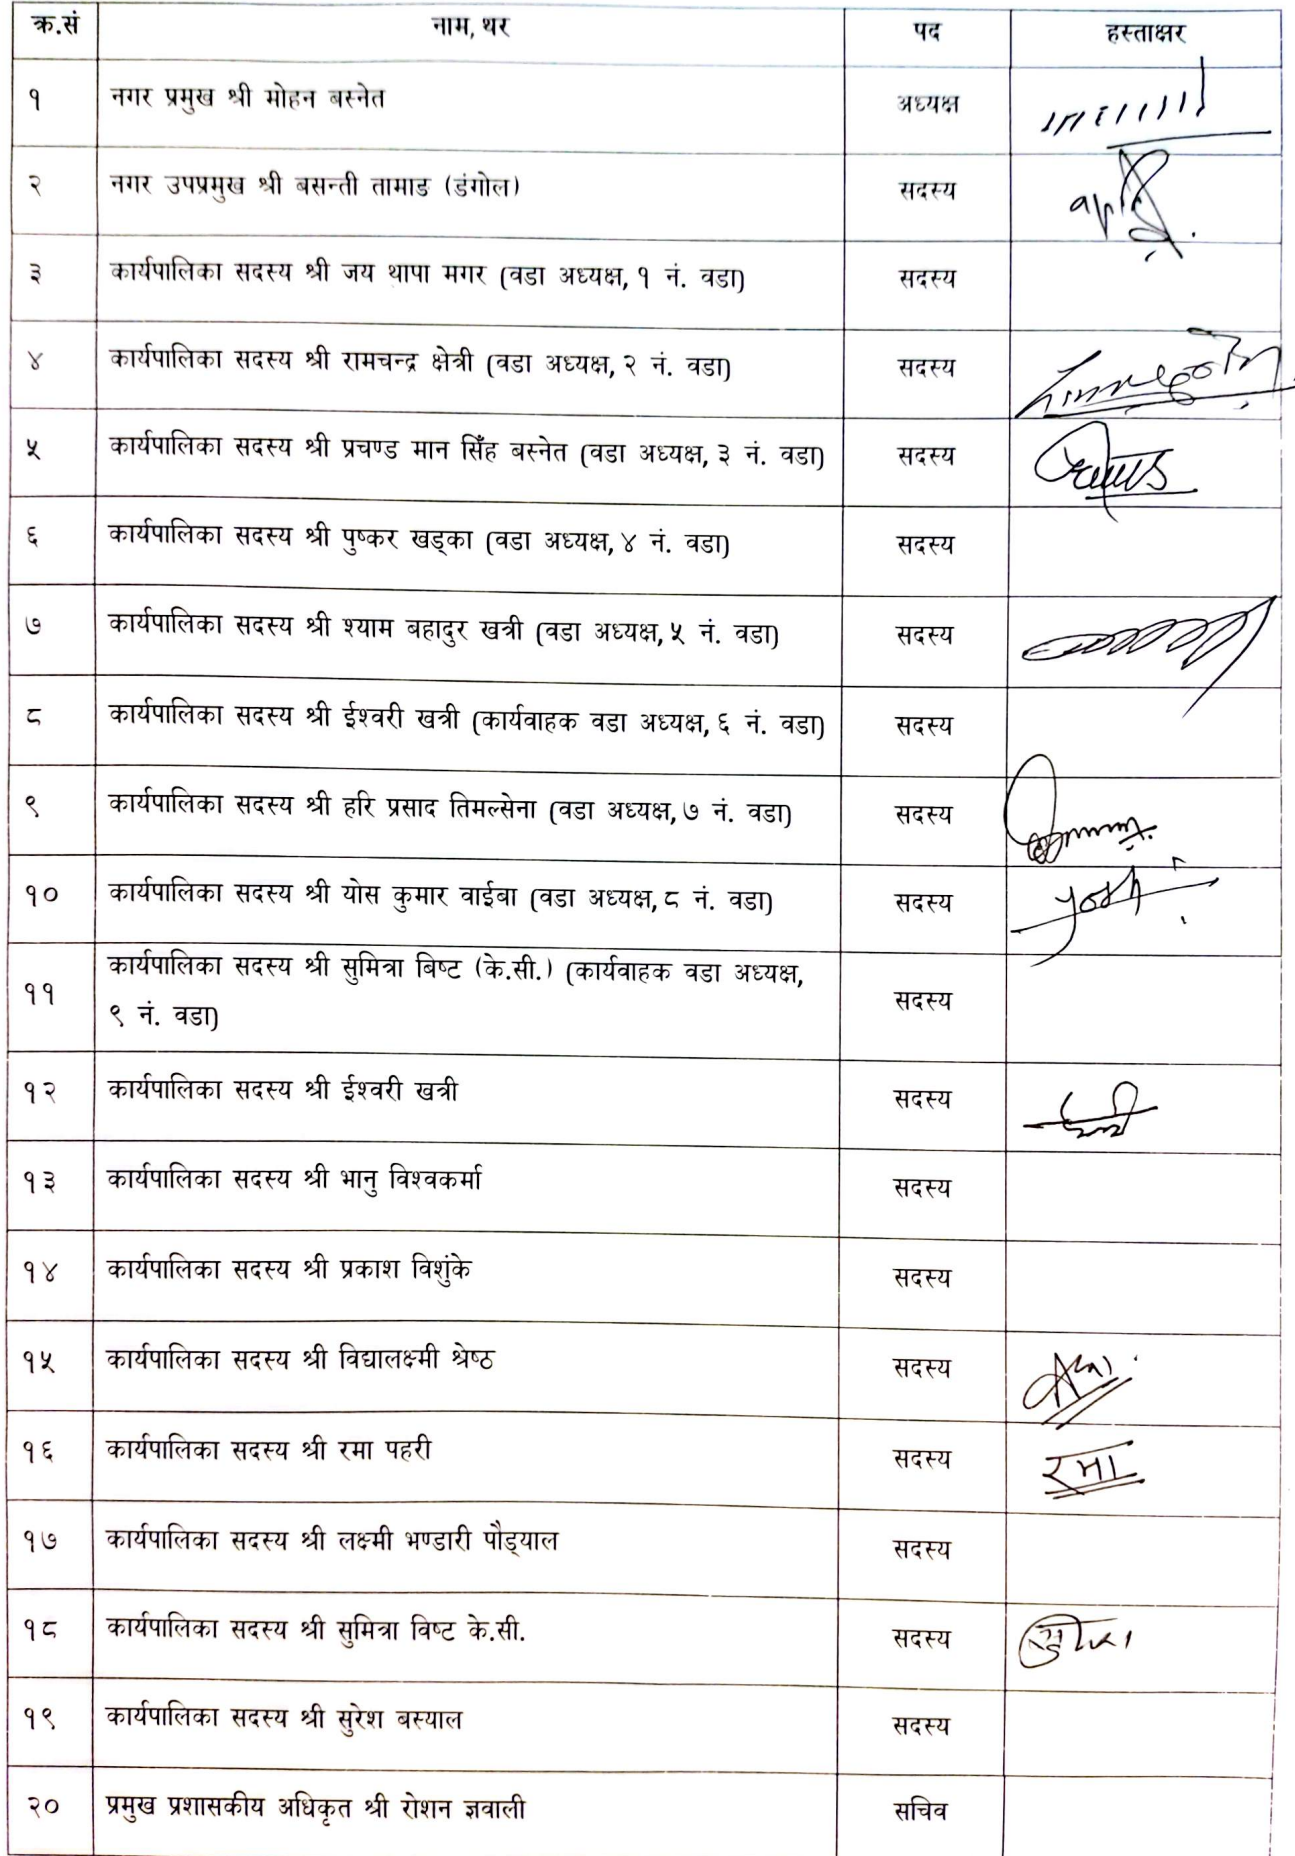 क्र.सं नाम, थर पद हस्ताक्षर
१ नगर प्रमुख श्री मोहन बस्नेत अध्यक्ष
२ नगर उपप्रमुख श्री बसन्ती तामाङ (डंगोल) सदस्य
३ कार्यपालिका सदस्य श्री जय थापा मगर (वडा अध्यक्ष, १ नं. वडा) सदस्य
४ कार्यपालिका सदस्य श्री रामचन्द्र क्षेत्री (वडा अध्यक्ष, २ नं. वडा) सदस्य
५ कार्यपालिका सदस्य श्री प्रचण्ड मान सिँह बस्नेत (वडा अध्यक्ष, ३ नं. वडा) सदस्य
६ कार्यपालिका सदस्य श्री पुष्कर खड्का (वडा अध्यक्ष, ४ नं. वडा) सदस्य
७ कार्यपालिका सदस्य श्री श्याम बहादुर खत्री (वडा अध्यक्ष, ५ नं. वडा) सदस्य
८ कार्यपालिका सदस्य श्री ईश्वरी खत्री (कार्यवाहक वडा अध्यक्ष, ६ नं. वडा) सदस्य
९ कार्यपालिका सदस्य श्री हरि प्रसाद तिमल्सेना (वडा अध्यक्ष, ७ नं. वडा) सदस्य
१० कार्यपालिका सदस्य श्री योस कुमार वाईबा (वडा अध्यक्ष, ८ नं. वडा) सदस्य
११ कार्यपालिका सदस्य श्री सुमित्रा बिष्ट (के.सी.) (कार्यवाहक वडा अध्यक्ष,
९ नं. वडा) सदस्य
१२ कार्यपालिका सदस्य श्री ईश्वरी खत्री सदस्य
१३ कार्यपालिका सदस्य श्री भानु विश्वकर्मा सदस्य
१४ कार्यपालिका सदस्य श्री प्रकाश विशुंके सदस्य
१५ कार्यपालिका सदस्य श्री विद्यालक्ष्मी श्रेष्ठ सदस्य
१६ कार्यपालिका सदस्य श्री रमा पहरी सदस्य रमा
१७ कार्यपालिका सदस्य श्री लक्ष्मी भण्डारी पौड्याल सदस्य
१८ कार्यपालिका सदस्य श्री सुमित्रा विष्ट के.सी. सदस्य
१९ कार्यपालिका सदस्य श्री सुरेश बस्याल सदस्य
२० प्रमुख प्रशासकीय अधिकृत श्री रोशन ज्ञवाली सचिव